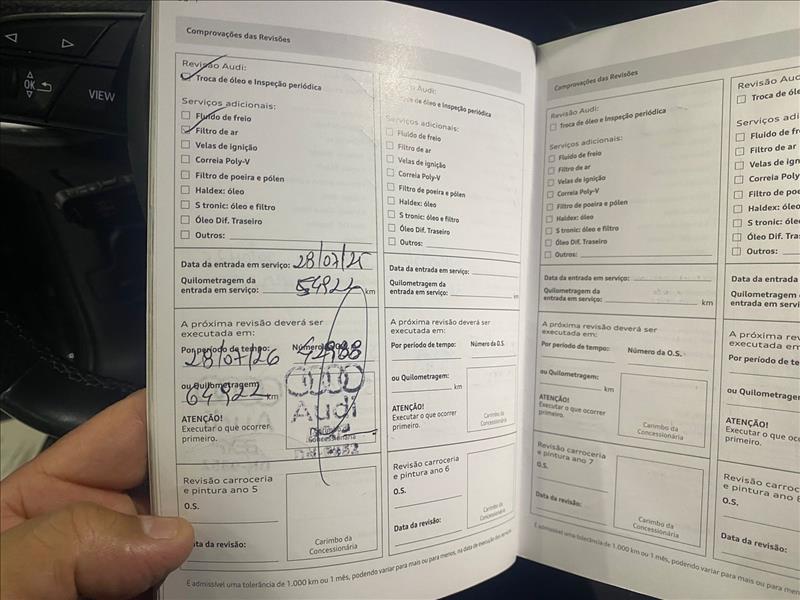 OK
VIEW
Comprovações das Revisões
Revisão Audi:
Troca de óleo e Inspeção periódica
Serviços adicionais:
Fluido de freio
Filtro de ar
Velas de ignição
Correia Poly-V
Filtro de poeira e pólen
Haldex: óleo
S tronic: óleo e filtro
Óleo Dif. Traseiro
Outros:
Data da entrada em serviço: 28/07/25
Quilometragem da
entrada em serviço: 54922 km
A próxima revisão deverá ser
executada em:
Por período de tempo:
28/07/26
ou Quilometragem
64922 km
ATENÇÃO!
Executar o que ocorrer
primeiro.
Audi
Concessionária
Revisão carroceria
e pintura ano 5
O.S.
Data da revisão:
Carimbo da
Concessionária
Audi:
de óleo e Inspeção periódica
Serviços adicionais:
Fluido de freio
Filtro de ar
Velas de ignição
Correia Poly-V
Filtro de poeira e pólen
Haldex: óleo
S tronic: óleo e filtro
Óleo Dif. Traseiro
Outros:
Data da entrada em serviço:
Quilometragem da
entrada em serviço: km
A próxima revisão deverá ser
executada em:
Por período de tempo: Número da O.S.
ou Quilometragem:
km
ATENÇÃO!
Executar o que ocorrer
primeiro.
Carimbo da
Concessionária
Revisão carroceria
e pintura ano 6
O.S.
Data da revisão:
Carimbo da
Concessionária
É admissível uma tolerância de 1.000 km ou 1 mês, podendo variar para mais ou para menos, na data de execução dos serviços
Comprovações das Revisões
Revisão Audi:
Troca de óleo e Inspeção periódica
Serviços adicionais:
Fluido de freio
Filtro de ar
Velas de ignição
Correia Poly-V
Filtro de poeira e pólen
Haldex: óleo
S tronic: óleo e filtro
Óleo Dif. Traseiro
Outros:
Data da entrada em serviço:
Quilometragem da
entrada em serviço: km
A próxima revisão deverá ser
executada em:
Por período de tempo: Número da O.S.
ou Quilometragem:
km
ATENÇÃO!
Executar o que ocorrer
primeiro.
Carimbo da
Concessionária
Revisão carroceria
e pintura ano 7
O.S.
Data da revisão:
Carimbo da
Concessionária
Revisão Audi
Troca de óle
Serviços adi
Fluido de fr
Filtro de ar
Velas de ign
Correia Poly
Filtro de po
Haldex: óleo
S tronic: óle
Óleo Dif. Tra
Outros:
Data da entrada
Quilometragem
entrada em servi
A próxima rev
executada em:
Por período de te
ou Quilometragem
ATENÇÃO!
Executar o que o
primeiro.
Revisão carroc
e pintura ano 8
O.S.
Data da revisão:
É admissível uma tolerância de 1.000 km ou 1 mês, podendo variar para mais ou para menos